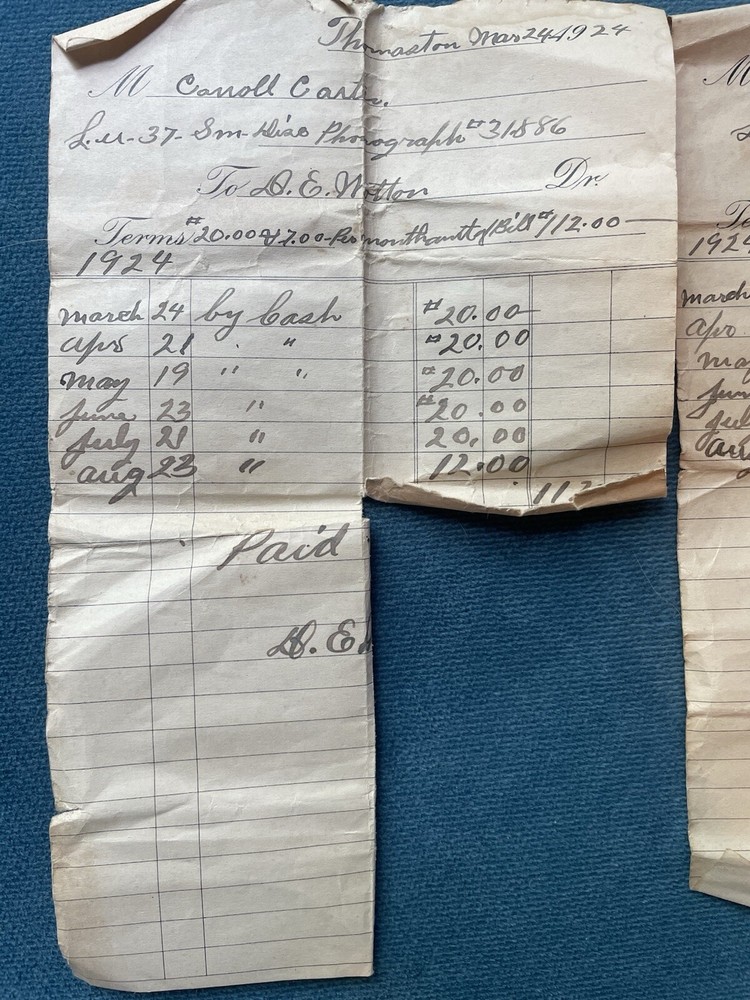 Thomaston Mar 24 1924
M Carroll Carter.
37- Phonograph #31886
To D. E. Wotton Dr.
Terms #20.00 7.00- Per month Bill #112.00
1924
March 24 by Cash #20.00
Apr 21 " " #20.00
May 19 " " #20.00
June 23 " #20.00
July 21 " 20.00
Aug 23 " 12.00
112
Paid
D. E.
M
1924
March
Apr
May
June
July
Aug